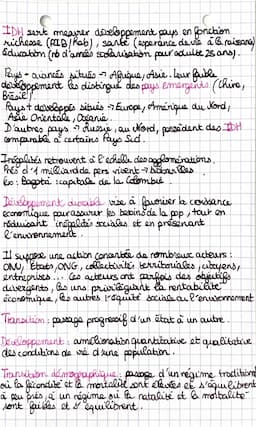 IDH sert mesurer développement pays en fonction
richesse (PIB/hab), santé (espérance de vie à la naissance)
éducation (nb d'années scolarisation pour adulte 25 ans).
Pays - avancés situés → Afrique, Asie. Leur faible
développement les distingue des pays émergents (Chine,
Brésil)
Pays + développés situés → Europe, Amérique du Nord,
Asie Orientale, Océanie.
D'autres pays → Russie, au Nord, possèdent des IDH
comparable à certains Pays Sud.
Inégalités retrouvent à l'échelle des agglomérations.
Près d'1 milliard de pers vivent → bidonvilles
Ex: Bogotá : capitale de la Colombie
Développement durable vise à favoriser la croissance
économique pour assurer les besoins de la pop, tout en
réduisant inégalités sociales et en préservant
l'environnement.
Il suppose une action concertée de nombreux acteurs :
ONU, États, ONG, collectivités territoriales, citoyens,
entreprises... Ces acteurs ont parfois des objectifs
divergents, les uns privilégiant la rentabilité
économique, les autres l'équité sociale ou l'environnement
Transition: passage progressif d'un état à un autre.
Développement: amélioration quantitative et qualitative
des conditions de vie d'une population.
Transition démographique: passage d'un régime traditionnel
où la fécondité et la mortalité sont élevées et s'équilibrent
à peu près, à un régime où la natalité et la mortalité
sont faibles et s'équilibrent.